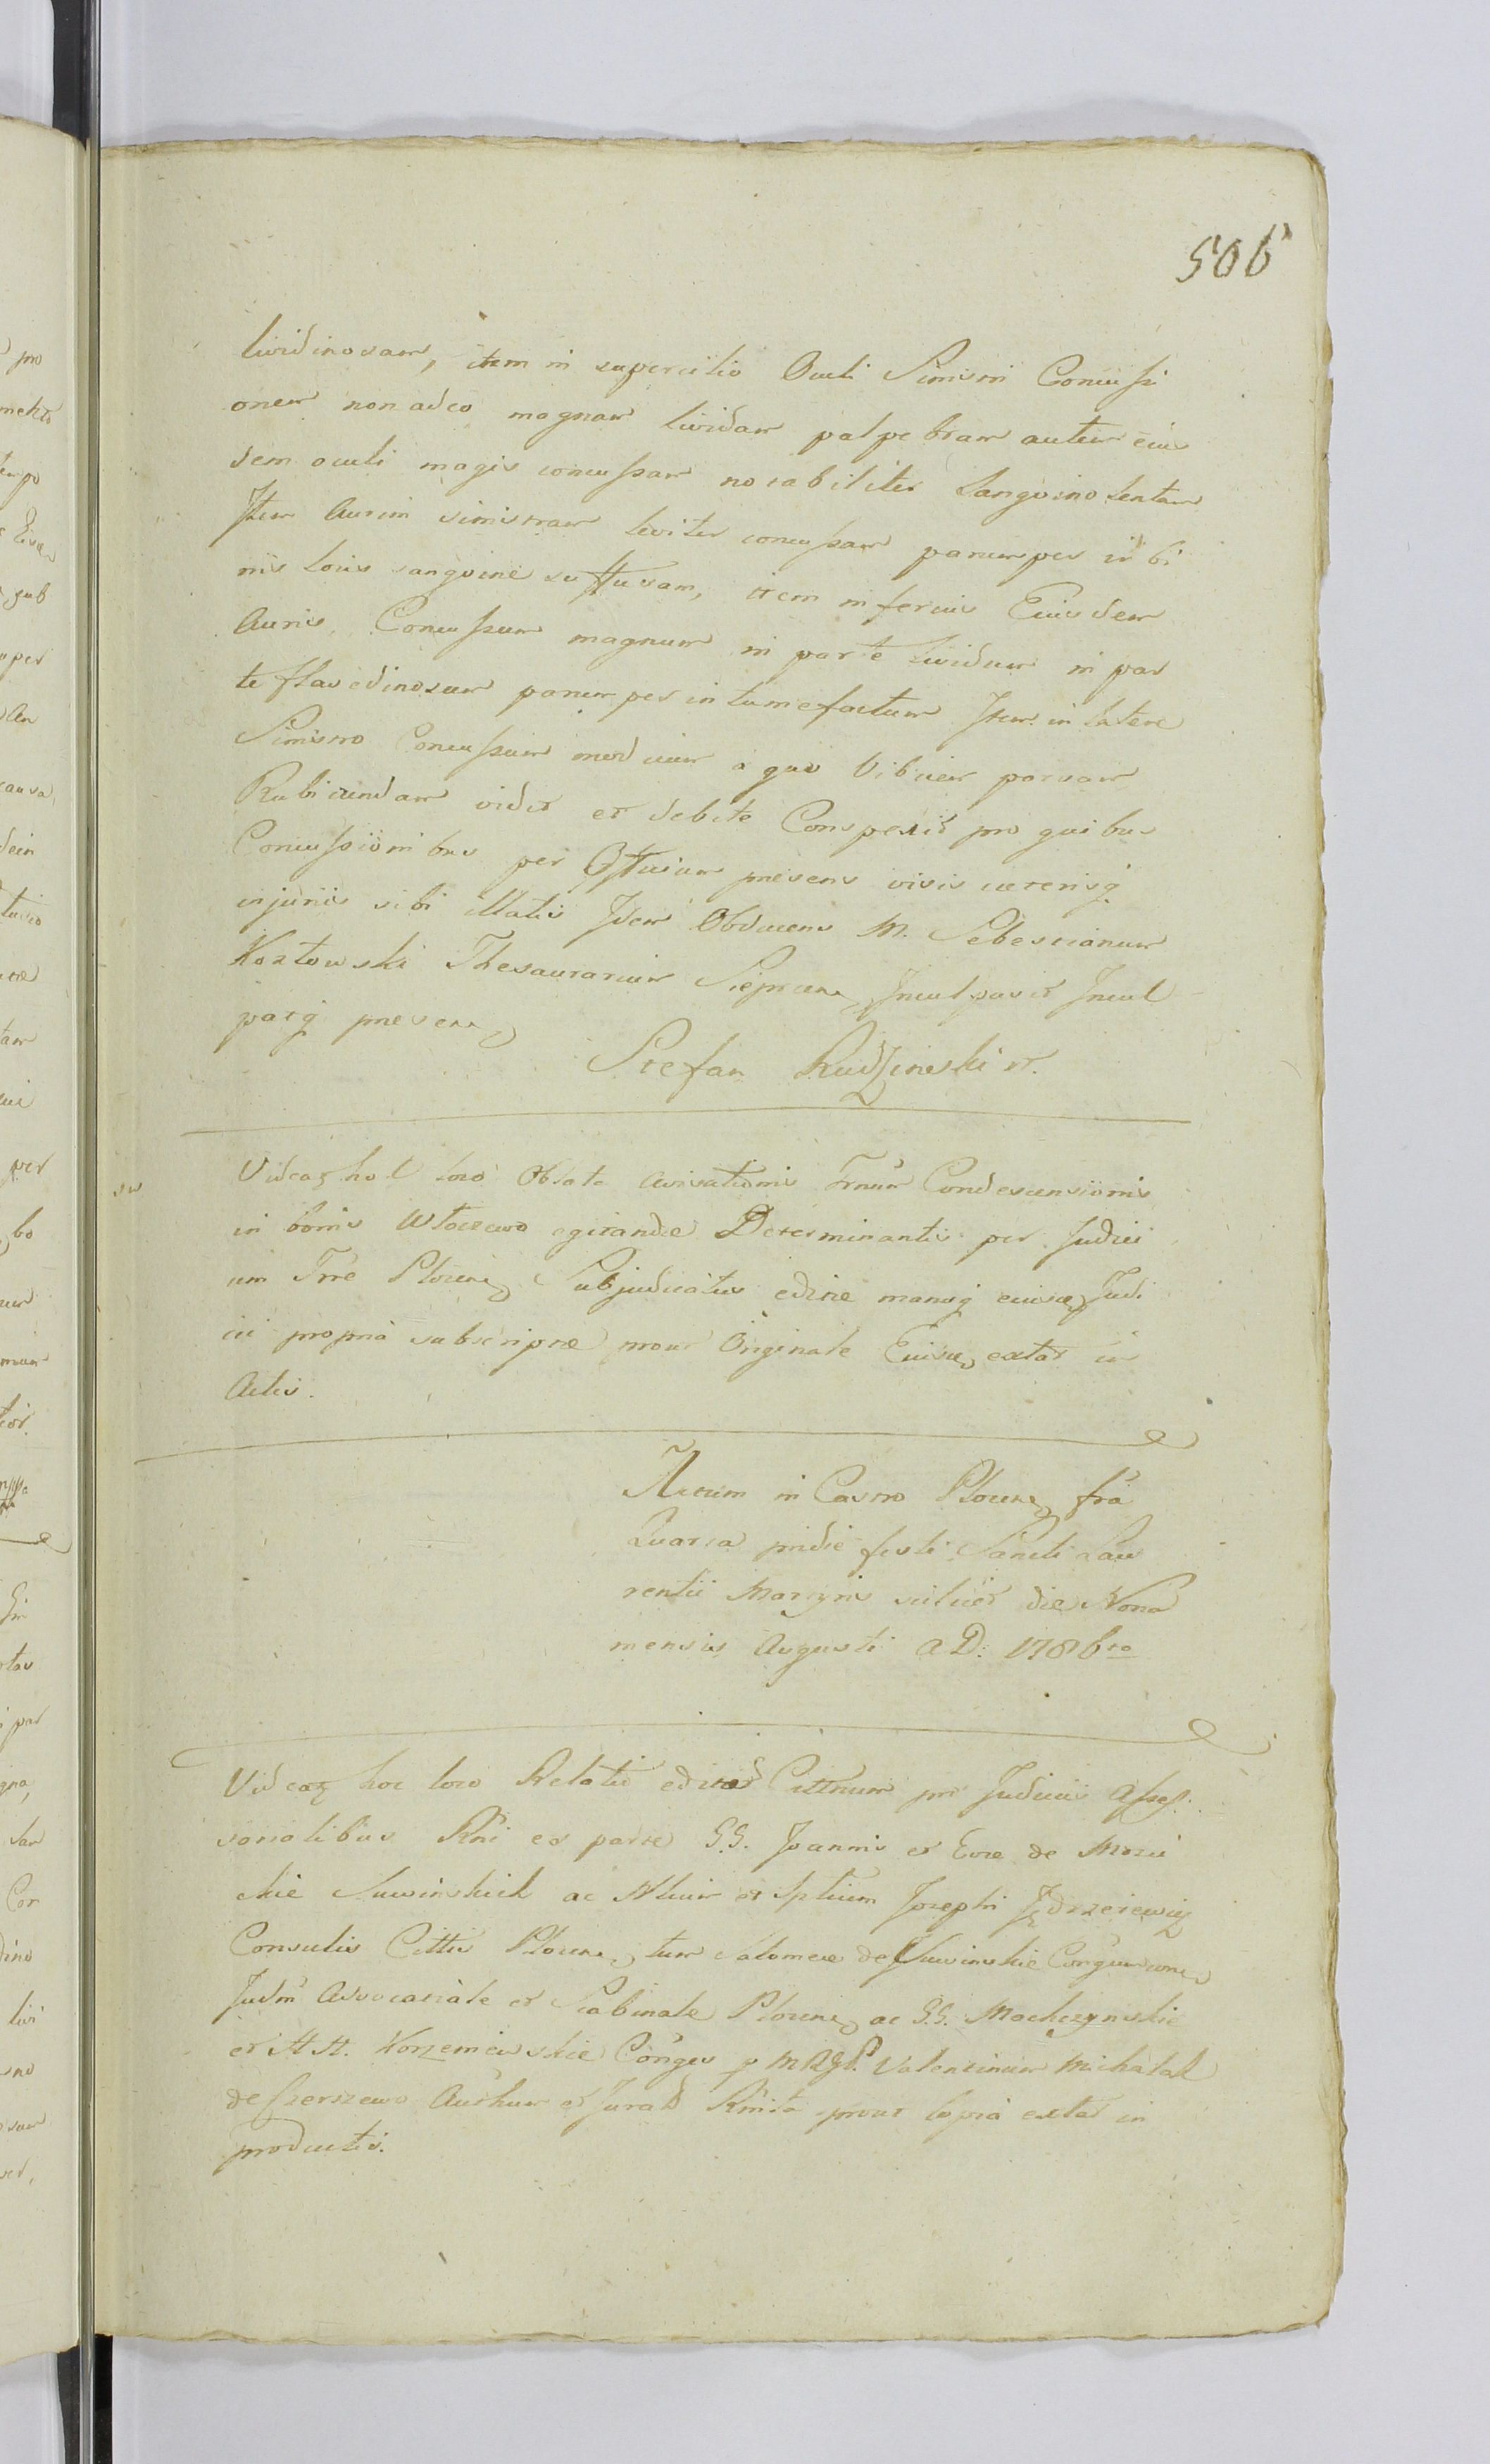 506
lividinosam, item in supercilio Oculi Sinistri Concussi
onem non adeo magnam lividam palpebram autem eius
dem oculi magis concussam notabiliter Sangvinolentam
Item Aurim sinistram leviter concussam parumper in bi
nis locis sangvine suffusam, item inferius Eiusdem
Auris Concussum magnum in parte lividum in par
te flavedinosum parumper intumefactum Item in latere
Sinistro Concussum modicum a quo Vibicem parvam
Rubicundam vidit et debite Conspexit pro quibus
Concussionibus per Offusum presens visis ceterisq
injuriis sibi illatis Idem Obducens M. Sebestianum
Kozłowski Thesaurarium Sieprcen InculpavitIncul
patq presen
Stefan Rudzinski
Videatz hoc loco Oblata Avisationis Trnum Condescensionis
in bonis Włoczewo agitandae Determinantis per Judici
um Trre Plocen Subjudicatus editae manuq eiusd Judi
cii propria subscriptae prout Originale Eiusd extat in
Actis.
Actum in Castro Plocen fria
Quarta pridie festi Sancti Lau
rentii Martyris scilicet die Nona
mensis Augusti A D: 1786to
Videatz hoc loco Relatio editar Cittnum pro Judiciis Asses
sorialibus Rni ex parte G.G. Joannis et Evae de
Suwinskich ac Josephi Jędrzeiewicz
Consulis Cittis Plocen tum Salomeae de Suwinskie Congum
Judm Advocatiale et Scabinale Plocen ac G.G. Mochczynskie
et Korzeniewskie Conges p Valentinum Michalak
de Szerszewo et Jurat prout copia extat in
productis.